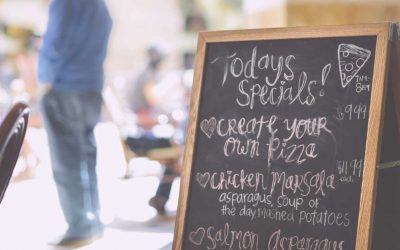 Todays
Specials!
7PM-
$9.99
Create Your
Own Pizza
$11.99
Chicken Marsala
asparagus, soup of
the day mashed potatoes
Salmon Asparagus